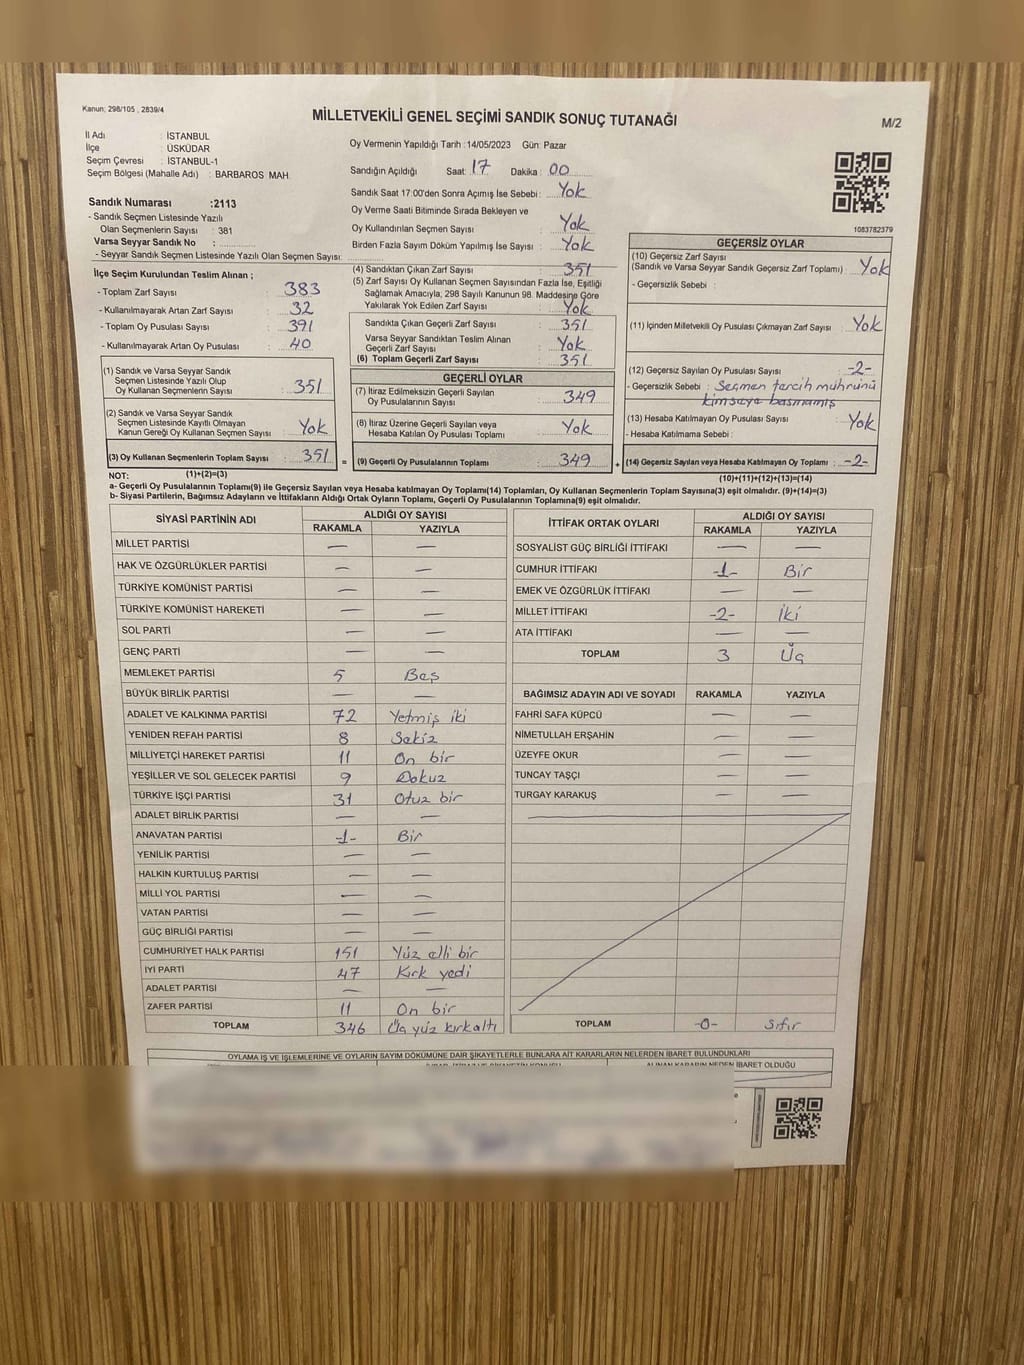 Kanun; 298/105 , 2839/4
MİLLETVEKİLİ GENEL SEÇİMİ SANDIK SONUÇ TUTANAĞI
M/2
İl Adı : İSTANBUL
İlçe : ÜSKÜDAR
Seçim Çevresi : İSTANBUL-1
Seçim Bölgesi (Mahalle Adı) : BARBAROS MAH.
Sandık Numarası :2113
- Sandık Seçmen Listesinde Yazılı
Olan Seçmenlerin Sayısı : 381
Varsa Seyyar Sandık No :
- Seyyar Sandık Seçmen Listesinde Yazılı Olan Seçmen Sayısı:
Oy Vermenin Yapıldığı Tarih :14/05/2023 Gün: Pazar
Sandığın Açıldığı Saat: 17 Dakika : 00
Sandık Saat 17:00'den Sonra Açımış İse Sebebi : Yok
Oy Verme Saati Bitiminde Sırada Bekleyen ve
Oy Kullandırılan Seçmen Sayısı : Yok
Birden Fazla Sayım Döküm Yapılmış İse Sayısı : Yok
1083782379
İlçe Seçim Kurulundan Teslim Alınan ;
- Toplam Zarf Sayısı : 383
- Kullanılmayarak Artan Zarf Sayısı : 32
- Toplam Oy Pusulası Sayısı : 391
- Kullanılmayarak Artan Oy Pusulası : 40
(1) Sandık ve Varsa Seyyar Sandık
Seçmen Listesinde Yazılı Olup
Oy Kullanan Seçmenlerin Sayısı : 351
(2) Sandık ve Varsa Seyyar Sandık
Seçmen Listesinde Kayıtlı Olmayan
Kanun Gereği Oy Kullanan Seçmen Sayısı : Yok
(3) Oy Kullanan Seçmenlerin Toplam Sayısı : 351 =
(4) Sandıktan Çıkan Zarf Sayısı : 351
(5) Zarf Sayısı Oy Kullanan Seçmen Sayısından Fazla İse, Eşitliği
Sağlamak Amacıyla, 298 Sayılı Kanunun 98. Maddesine Göre
Yakılarak Yok Edilen Zarf Sayısı : Yok
Sandıkta Çıkan Geçerli Zarf Sayısı : 351
Varsa Seyyar Sandıktan Teslim Alınan
Geçerli Zarf Sayısı : Yok
(6) Toplam Geçerli Zarf Sayısı : 351
GEÇERLİ OYLAR
(7) İtiraz Edilmeksizin Geçerli Sayılan
Oy Pusulalarının Sayısı : 349
(8) İtiraz Üzerine Geçerli Sayılan veya
Hesaba Katılan Oy Pusulası Toplamı : Yok
(9) Geçerli Oy Pusulalarının Toplamı : 349 +
GEÇERSİZ OYLAR
(10) Geçersiz Zarf Sayısı
(Sandık ve Varsa Seyyar Sandık Geçersiz Zarf Toplamı) : Yok
- Geçersizlik Sebebi :
(11) İçinden Milletvekili Oy Pusulası Çıkmayan Zarf Sayısı : Yok
(12) Geçersiz Sayılan Oy Pusulası Sayısı : -2-
- Geçersizlik Sebebi : Seçmen tercih mührünü
kimseye basmamış
(13) Hesaba Katılmayan Oy Pusulası Sayısı : Yok
- Hesaba Katılmama Sebebi :
(14) Geçersiz Sayılan veya Hesaba Katılmayan Oy Toplamı : -2-
NOT: (1)+(2)=(3) (10)+(11)+(12)+(13)=(14)
a- Geçerli Oy Pusulalarının Toplamı(9) ile Geçersiz Sayılan veya Hesaba katılmayan Oy Toplamı(14) Toplamları, Oy Kullanan Seçmenlerin Toplam Sayısına(3) eşit olmalıdır. (9)+(14)=(3)
b- Siyasi Partilerin, Bağımsız Adayların ve İttifakların Aldığı Ortak Oyların Toplamı, Geçerli Oy Pusulalarının Toplamına(9) eşit olmalıdır.
SİYASİ PARTİNİN ADI ALDIĞI OY SAYISI
RAKAMLA YAZIYLA
MİLLET PARTİSİ — —
HAK VE ÖZGÜRLÜKLER PARTİSİ — —
TÜRKİYE KOMÜNİST PARTİSİ — —
TÜRKİYE KOMÜNİST HAREKETİ — —
SOL PARTİ — —
GENÇ PARTİ — —
MEMLEKET PARTİSİ 5 Beş
BÜYÜK BİRLİK PARTİSİ — —
ADALET VE KALKINMA PARTİSİ 72 Yetmiş iki
YENİDEN REFAH PARTİSİ 8 Sekiz
MİLLİYETÇİ HAREKET PARTİSİ 11 On bir
YEŞİLLER VE SOL GELECEK PARTİSİ 9 Dokuz
TÜRKİYE İŞÇİ PARTİSİ 31 Otuz bir
ADALET BİRLİK PARTİSİ — —
ANAVATAN PARTİSİ -1- Bir
YENİLİK PARTİSİ — —
HALKIN KURTULUŞ PARTİSİ — —
MİLLİ YOL PARTİSİ — —
VATAN PARTİSİ — —
GÜÇ BİRLİĞİ PARTİSİ — —
CUMHURİYET HALK PARTİSİ 151 Yüz elli bir
İYİ PARTİ 47 Kırk yedi
ADALET PARTİSİ — —
ZAFER PARTİSİ 11 On bir
TOPLAM 346 Üç yüz kırkaltı
İTTİFAK ORTAK OYLARI ALDIĞI OY SAYISI
RAKAMLA YAZIYLA
SOSYALİST GÜÇ BİRLİĞİ İTTİFAKI — —
CUMHUR İTTİFAKI -1- Bir
EMEK VE ÖZGÜRLÜK İTTİFAKI — —
MİLLET İTTİFAKI -2- İki
ATA İTTİFAKI — —
TOPLAM 3 Üç
BAĞIMSIZ ADAYIN ADI VE SOYADI RAKAMLA YAZIYLA
FAHRİ SAFA KÜPCÜ — —
NİMETULLAH ERŞAHİN — —
ÜZEYFE OKUR — —
TUNCAY TAŞÇI — —
TURGAY KARAKUŞ — —
TOPLAM -0- Sıfır
OYLAMA İŞ VE İŞLEMLERİNE VE OYLARIN SAYIM DÖKÜMÜNE DAİR ŞİKAYETLERLE BUNLARA AİT KARARLARIN NELERDEN İBARET BULUNDUKLARI
ALINAN KARARIN NEDEN İBARET OLDUĞU